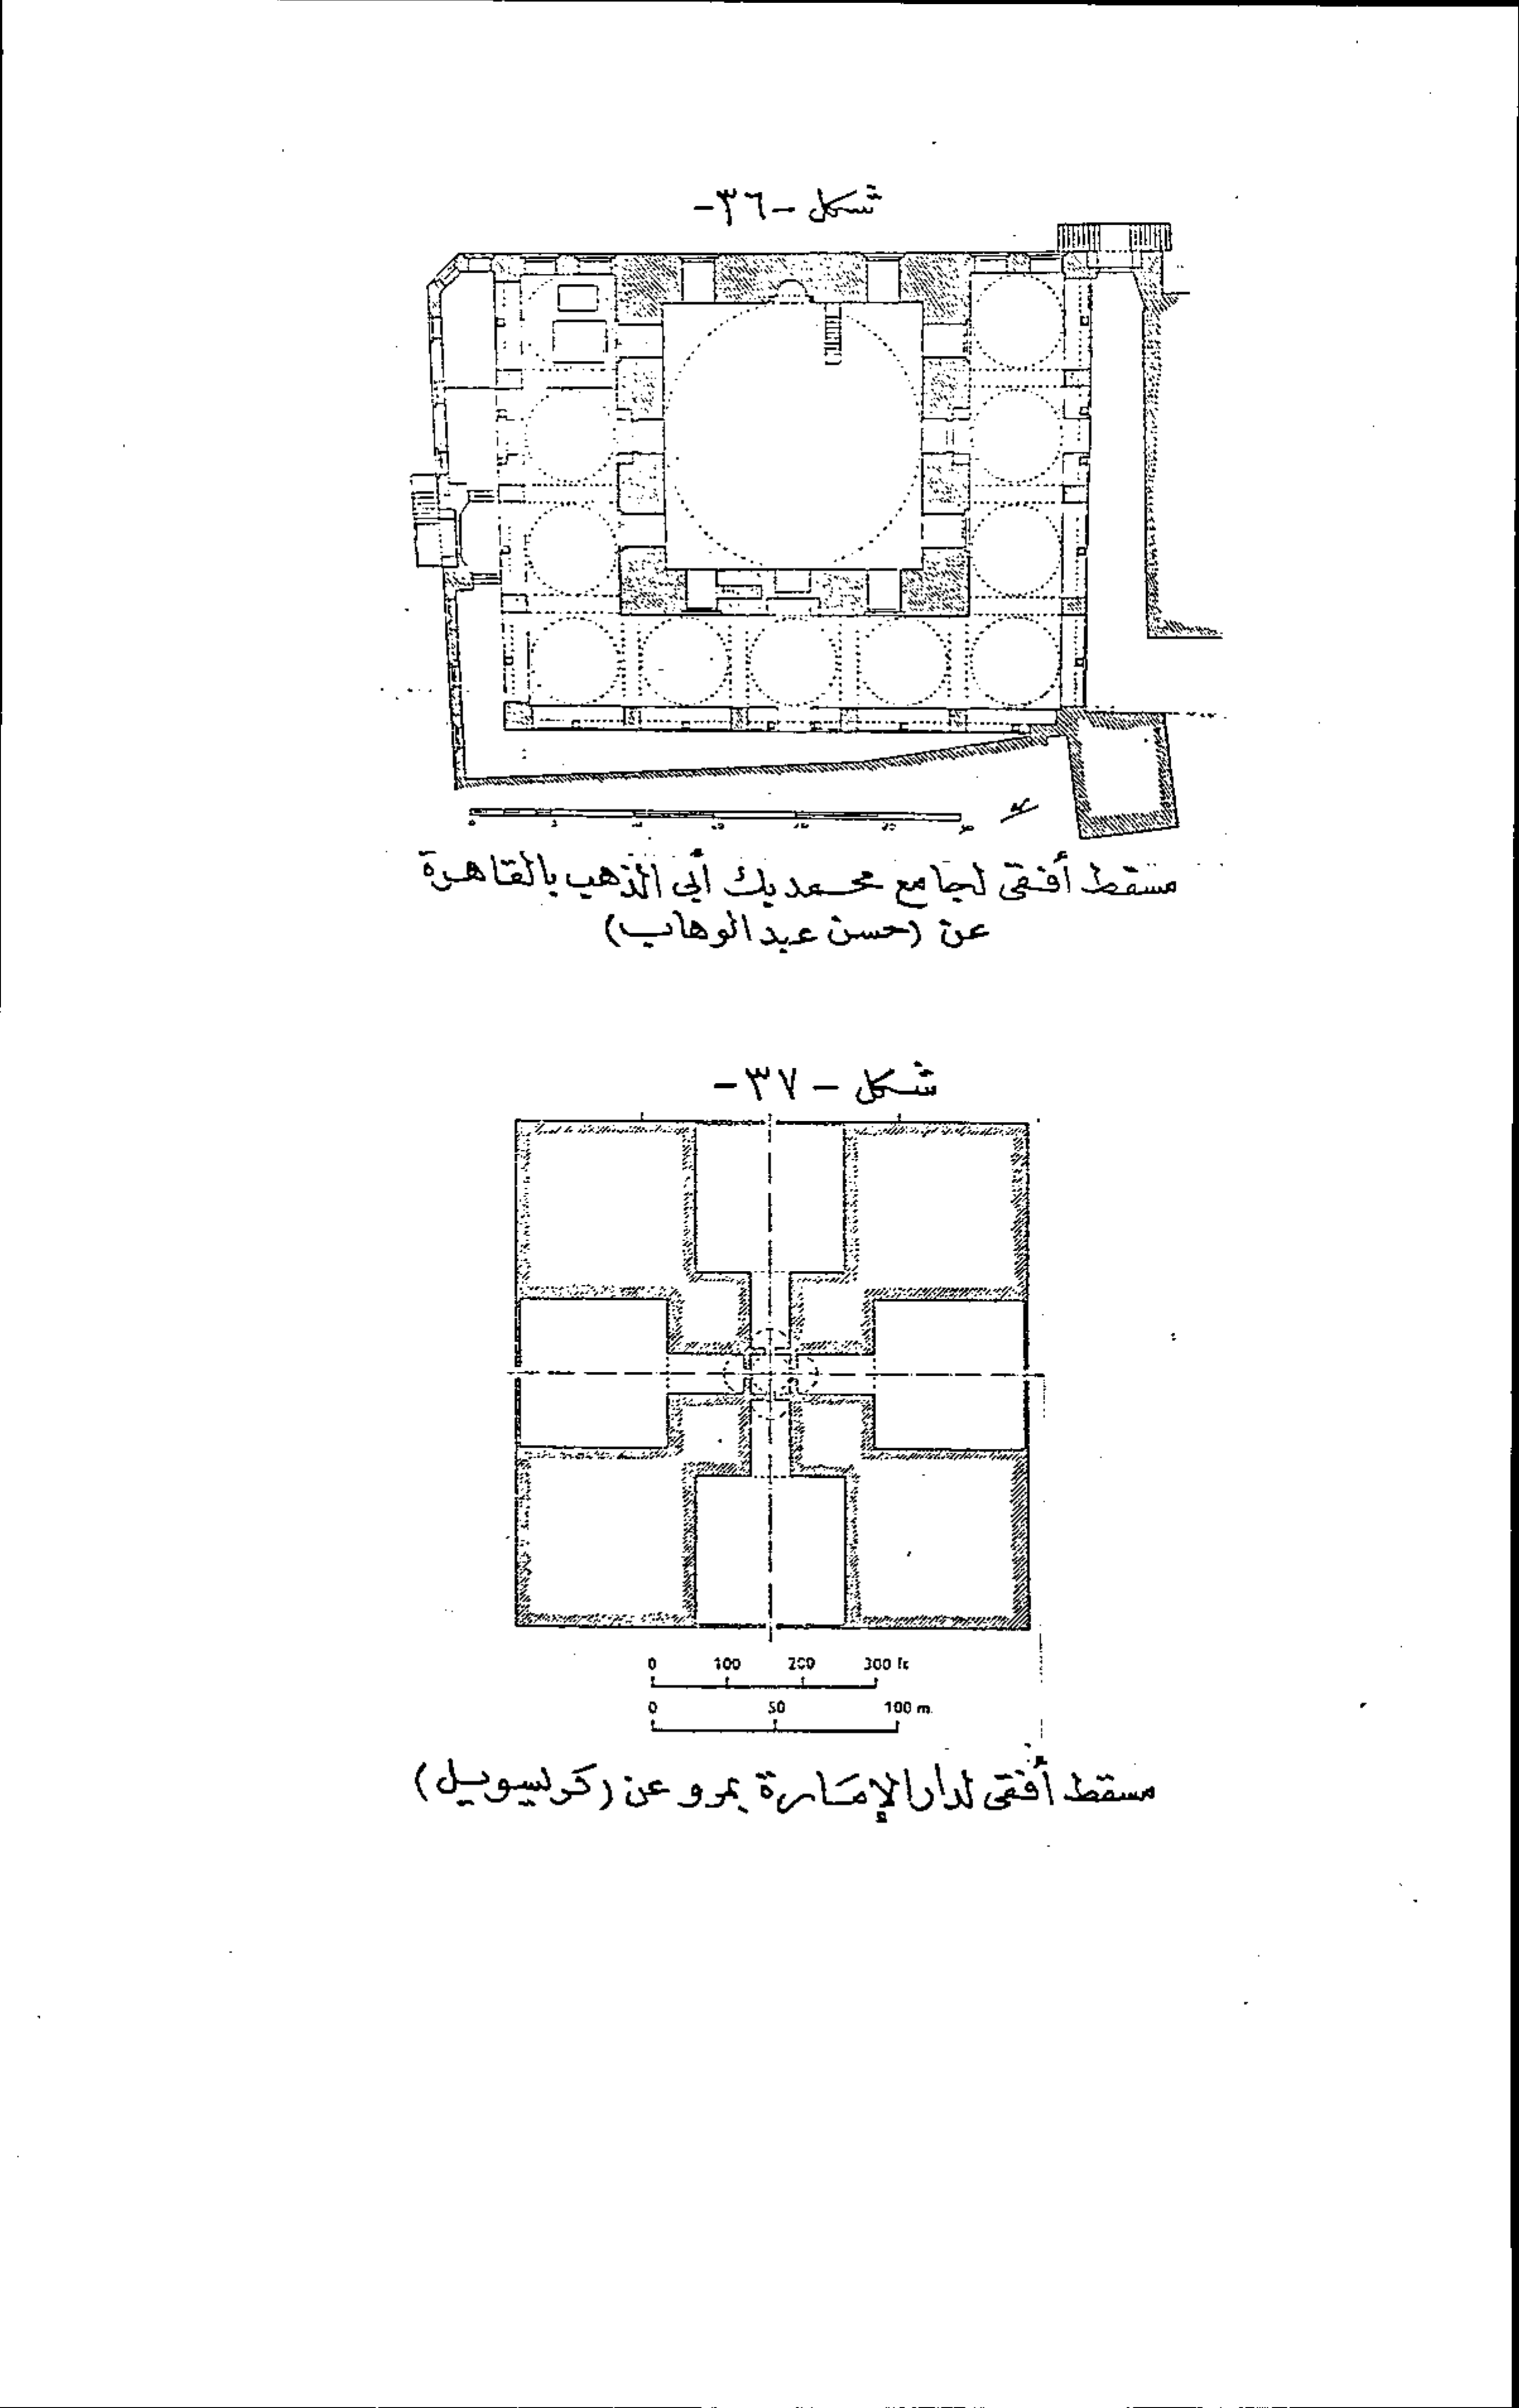 شكل -٣٦-
مسقط أفقى لجامع محمد بك أبى الذهب بالقاهرة
عن (حسن عبد الوهاب)
شكل - ٣٧ -
0 100 200 300 ft
0 50 100 m.
مسقط أفقى لدار الإمارة بمرو عن (كرليسويل)